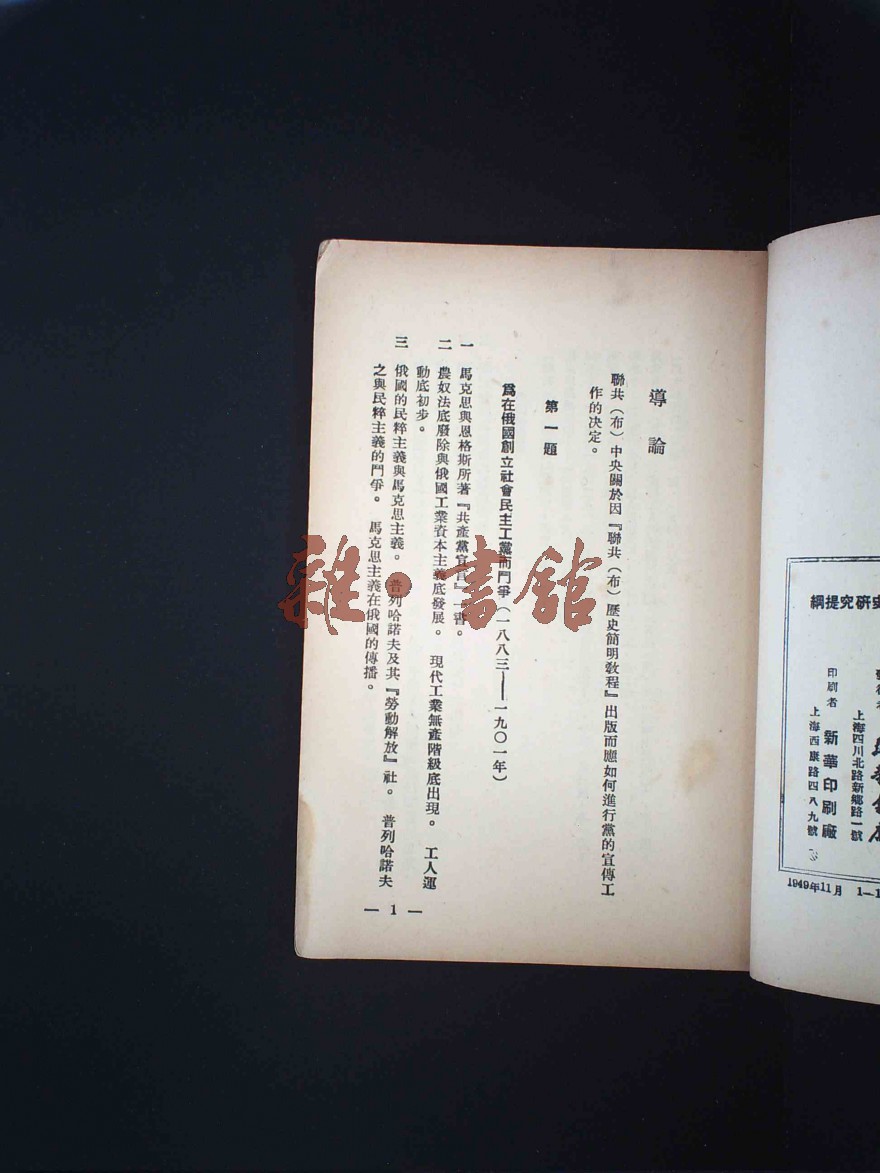 導論
聯共(布)中央關於因『聯共(布)歷史簡明敎程』出版而應如何進行黨的宣傳工
作的決定。
第一題
爲在俄國創立社會民主工黨而鬥爭(一八八三——一九〇一年)
一 馬克思與恩格斯所著『共產黨宣言』一書。
二 農奴法底廢除與俄國工業資本主義底發展。 現代工業無產階級底出現。 工人運
動底初步。
三 俄國的民粹主義與馬克思主義。 普列哈諾夫及其『勞動解放』社。 普列哈諾夫
之與民粹主義的鬥爭。 馬克思主義在俄國的傳播。
— 1 —
雜·書館
史研究提綱
上海四川北路新鄉路一號
印刷者 新華印刷廠
上海西康路四八九號
1949年11月